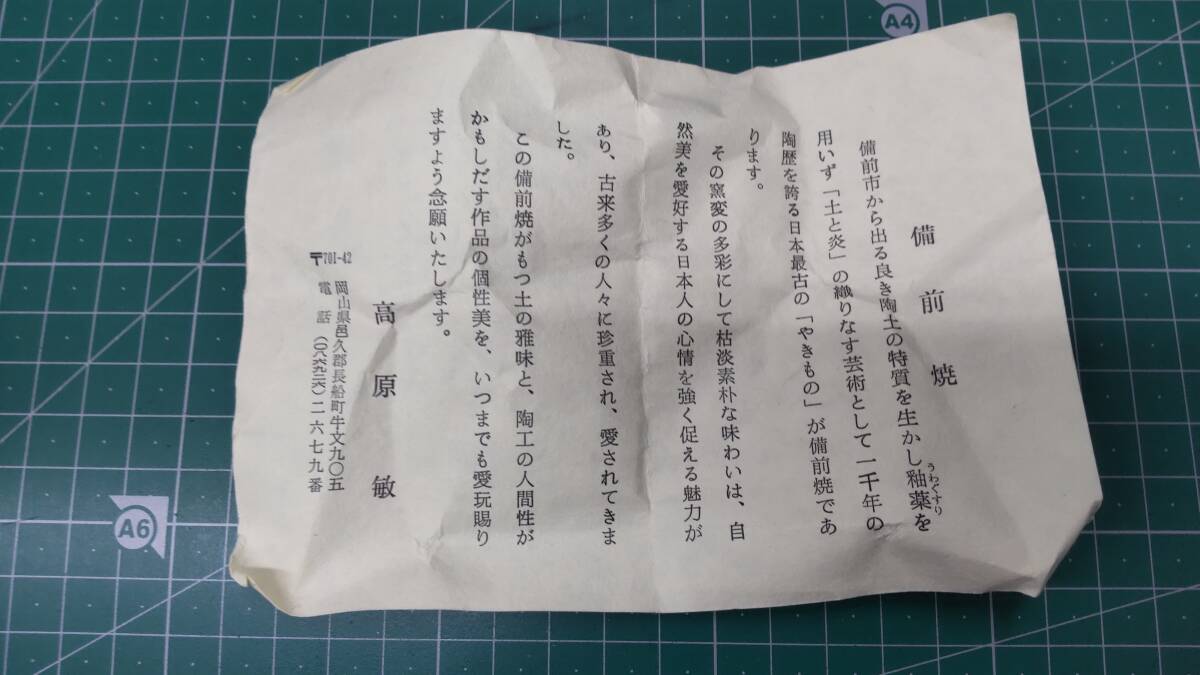 備前焼
備前市から出る良き陶土の特質を生かし釉薬を
うわぐすり
用いず「土と炎」の織りなす芸術として一千年の
陶歴を誇る日本最古の「やきもの」が備前焼であ
ります。
その窯変の多彩にして枯淡素朴な味わいは、自
然美を愛好する日本人の心情を強く促える魅力が
あり、古来多くの人々に珍重され、愛されてきま
した。
この備前焼がもつ土の雅味と、陶工の人間性が
かもしだす作品の個性美を、いつまでも愛玩賜り
ますよう念願いたします。
高原敏
〒701-42
岡山県邑久郡長船町牛文九〇五
電話(〇八六九二六)二六七九番
A4
A6